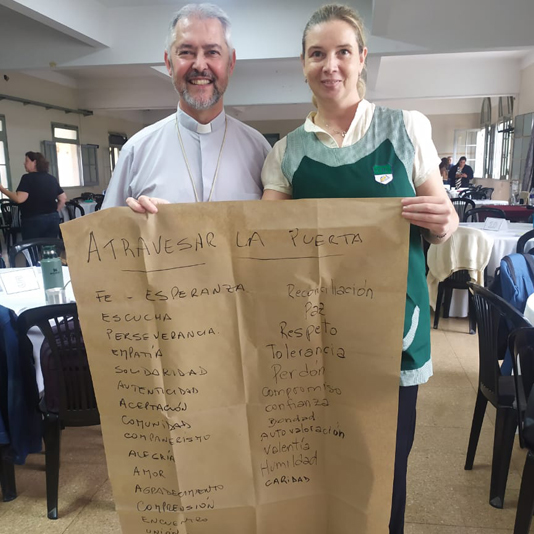 ATRAVESAR LA PUERTA
FE - ESPERANZA
ESCUCHA
PERSEVERANCIA
EMPATÍA
SOLIDARIDAD
AUTENTICIDAD
ACEPTACIÓN
COMUNIDAD
COMPAÑERISMO
ALEGRÍA
AMOR
AGRADECIMIENTO
COMPRENSIÓN
ENCUENTRO
UNIÓN
Reconciliación
Paz
Respeto
Tolerancia
Perdón
Compromiso
confianza
autovaloración
Valentía
Humildad
CARIDAD